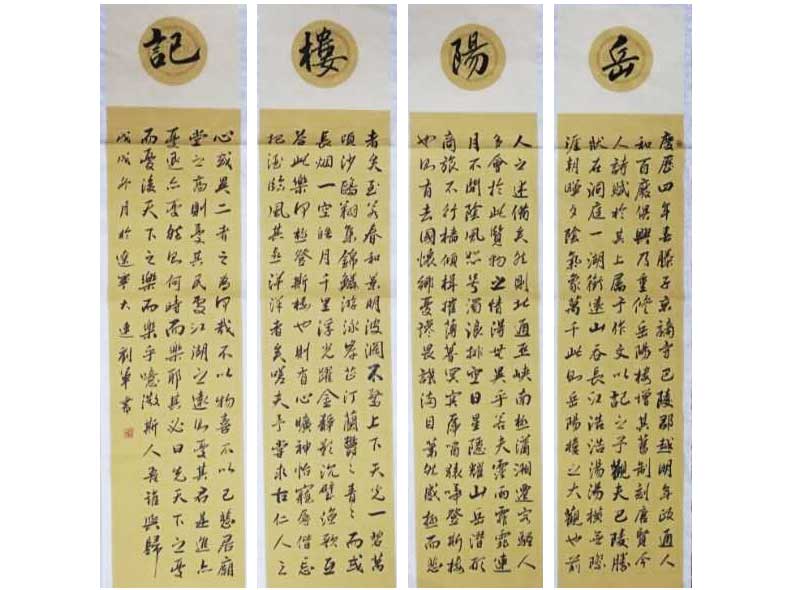 岳
慶曆四年春滕子京謫守巴陵郡越明年政通人
和百廢俱興乃重修岳陽樓增其舊制刻唐賢今
人詩賦於其上屬予作文以記之予觀夫巴陵勝
狀在洞庭一湖銜遠山吞長江浩浩湯湯橫無際
涯朝暉夕陰氣象萬千此則岳陽樓之大觀也前
陽
人之述備矣然則北通巫峽南極瀟湘遷客騷人
多會於此覽物之情得無異乎若夫霪雨霏霏連
月不開陰風怒號濁浪排空日星隱耀山岳潛形
商旅不行檣傾楫摧薄暮冥冥虎嘯猿啼登斯樓
也則有去國懷鄉憂讒畏譏滿目蕭然感極而悲
樓
者矣至若春和景明波瀾不驚上下天光一碧萬
頃沙鷗翔集錦鱗游泳岸芷汀蘭鬱〻青〻而或
長烟一空皓月千里浮光躍金靜影沉璧漁歌互
答此樂何極登斯樓也則有心曠神怡寵辱偕忘
把酒臨風其喜洋洋者矣嗟夫予嘗求古仁人之
記
心或異二者之為何哉不以物喜不以己悲居廟
堂之高則憂其民處江湖之遠則憂其君是進亦
憂退亦憂然則何時而樂耶其必曰先天下之憂
而憂後天下之樂而樂乎噫微斯人吾誰與歸
戊戌月於遼寧大連劉書